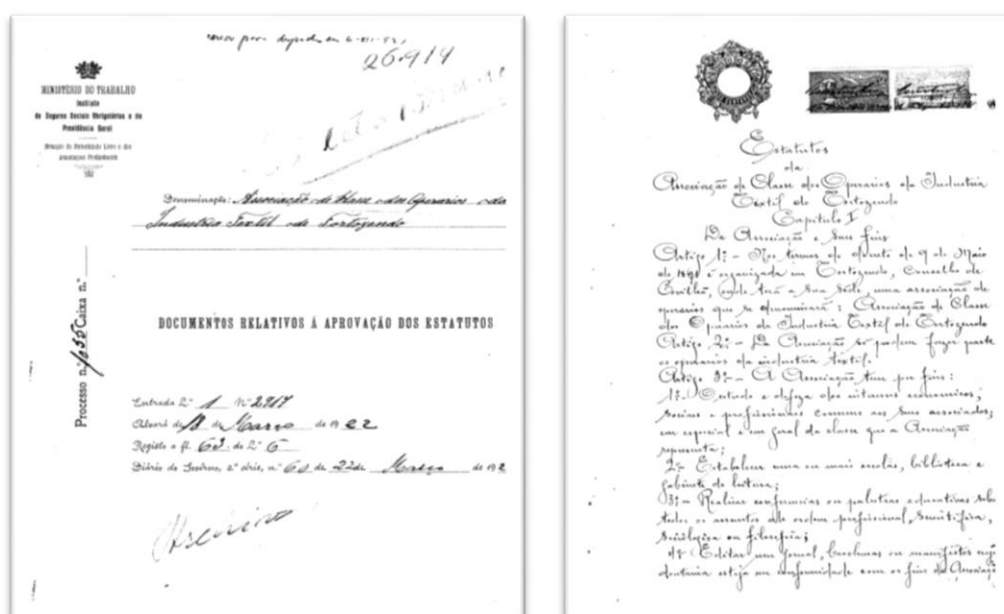 26.914
MINISTÉRIO DO TRABALHO
Instituto
de Seguros Sociais Obrigatórios e de
Previdência Geral
Denominação: Associação de Classe dos Operarios da
Industria Textil de Tortozendo
Processo n.º 1035 Caixa n.º
DOCUMENTOS RELATIVOS Á APROVAÇÃO DOS ESTATUTOS
Entrada L.º 1 N.º 2917
Alvará de 11 de Março de 1922
Registo a fl. 63 do L.º 6
Diário do Govêrno, 2.ª série, n.º 60 de 22 de Março de 192
Estatutos
da
Associação de Classe dos Operarios da Industria
Textil de Tortozendo
Capitulo I
Da Associação e seus fins
Artigo 1º - Nos termos do decreto de 9 de Maio
de 1891 é organizada em Tortozendo, concelho de
Covilhã, onde terá a sua séde, uma associação de
operarios que se denominará: Associação de Classe
dos Operarios da Industria Textil de Tortozendo
Artigo 2º - Da Associação só podem fazer parte
os operarios da industria textil.
Artigo 3º - A Associação tem por fins:
1º - O estudo e defeza dos interesses economicos,
sociais e profissionais comuns aos seus associados,
em especial e em geral da classe que a Associação
representa;
2º - Estabelecer uma ou mais escolas, biblioteca e
gabinete de leitura;
3º - Realizar conferencias ou palestras educativas sobre
todos os assuntos de ordem profissional, scientifica,
sociologica ou filosofica;
4º - Editar um jornal, brochuras ou manifestos cuja
doutrina esteja em conformidade com os fins da Associação